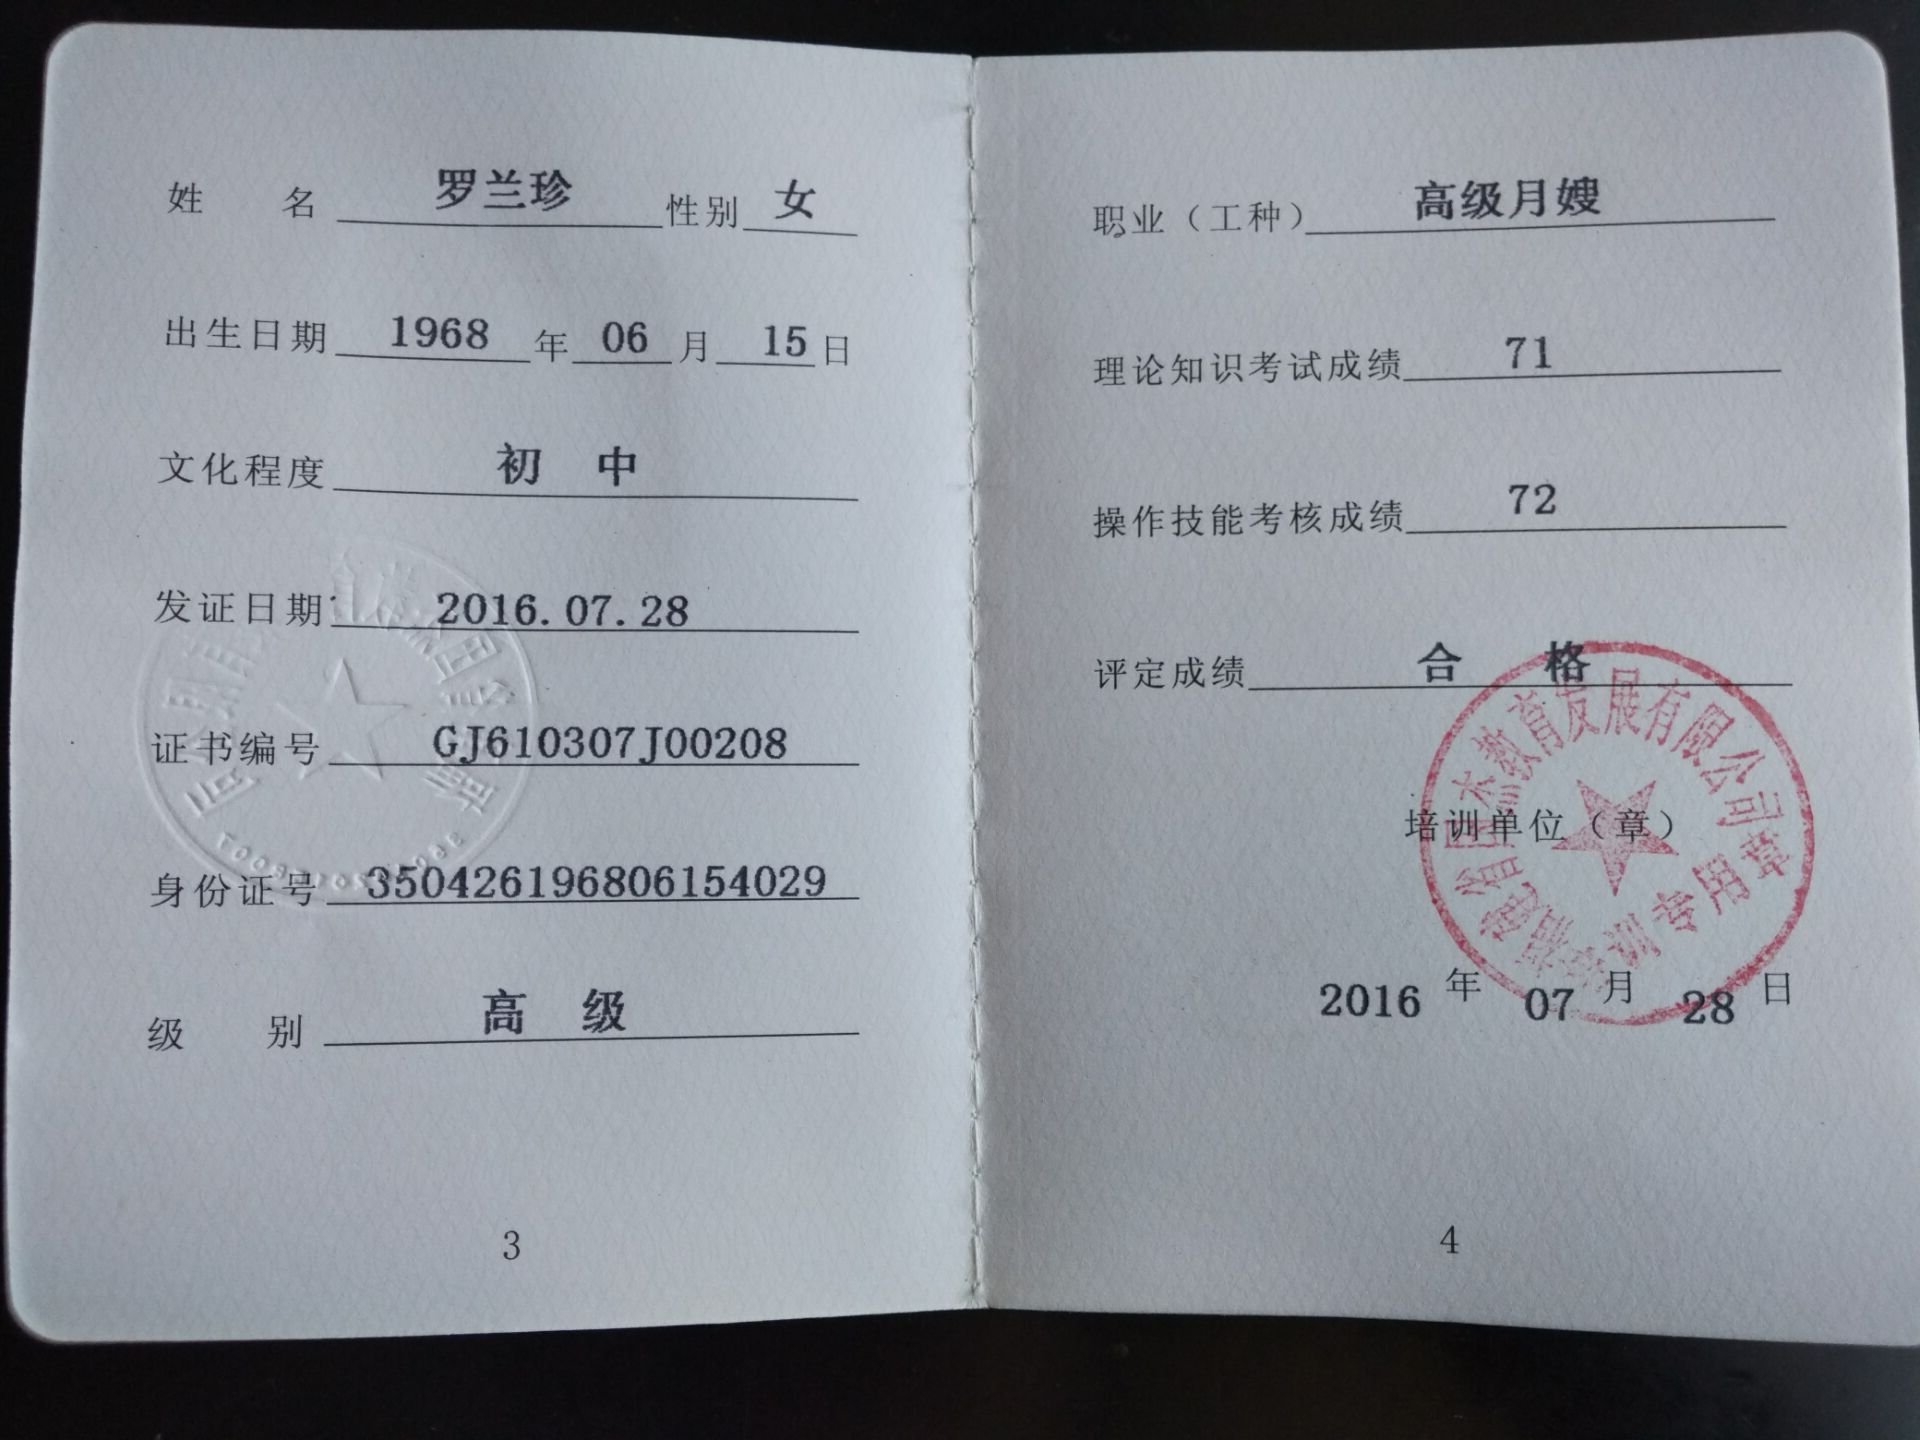 姓 名 罗兰珍 性别 女
出生日期 1968 年 06 月 15 日
文化程度 初 中
发证日期 2016.07.28
证书编号 GJ610307J00208
身份证号 350426196806154029
级 别 高 级
3
职业（工种） 高级月嫂
理论知识考试成绩 71
操作技能考核成绩 72
评定成绩 合 格
培训单位（章）
福建省国杰教育发展有限公司
培训专用章
2016 年 07 月 28 日
4